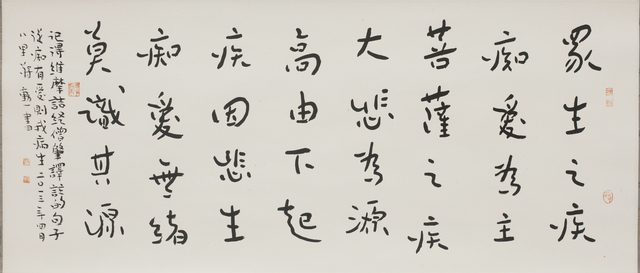 眾生之疾
痴愛為主
菩薩之疾
大悲為源
高由下起
疾因悲生
痴愛無緒
莫識其源
記得維摩詰經僧肇譯註的句子
從痴有愛則我病生二〇一三年四月
八里蔣勳書